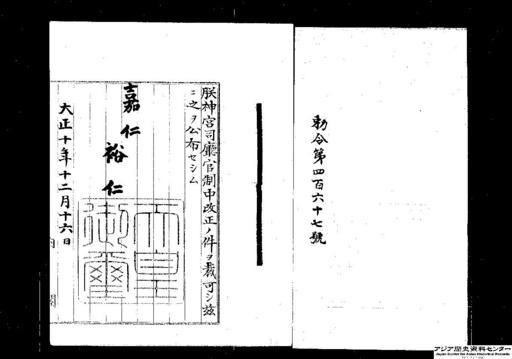 勅令第四百六十七號
朕神宮司廳官制中改正ノ件ヲ裁可シ茲
ニ之ヲ公布セシム
嘉仁
裕仁
天皇
御璽
大正十年十二月十六日
内閣
アジア歴史資料センター
Japan Center for Asian Historical Records